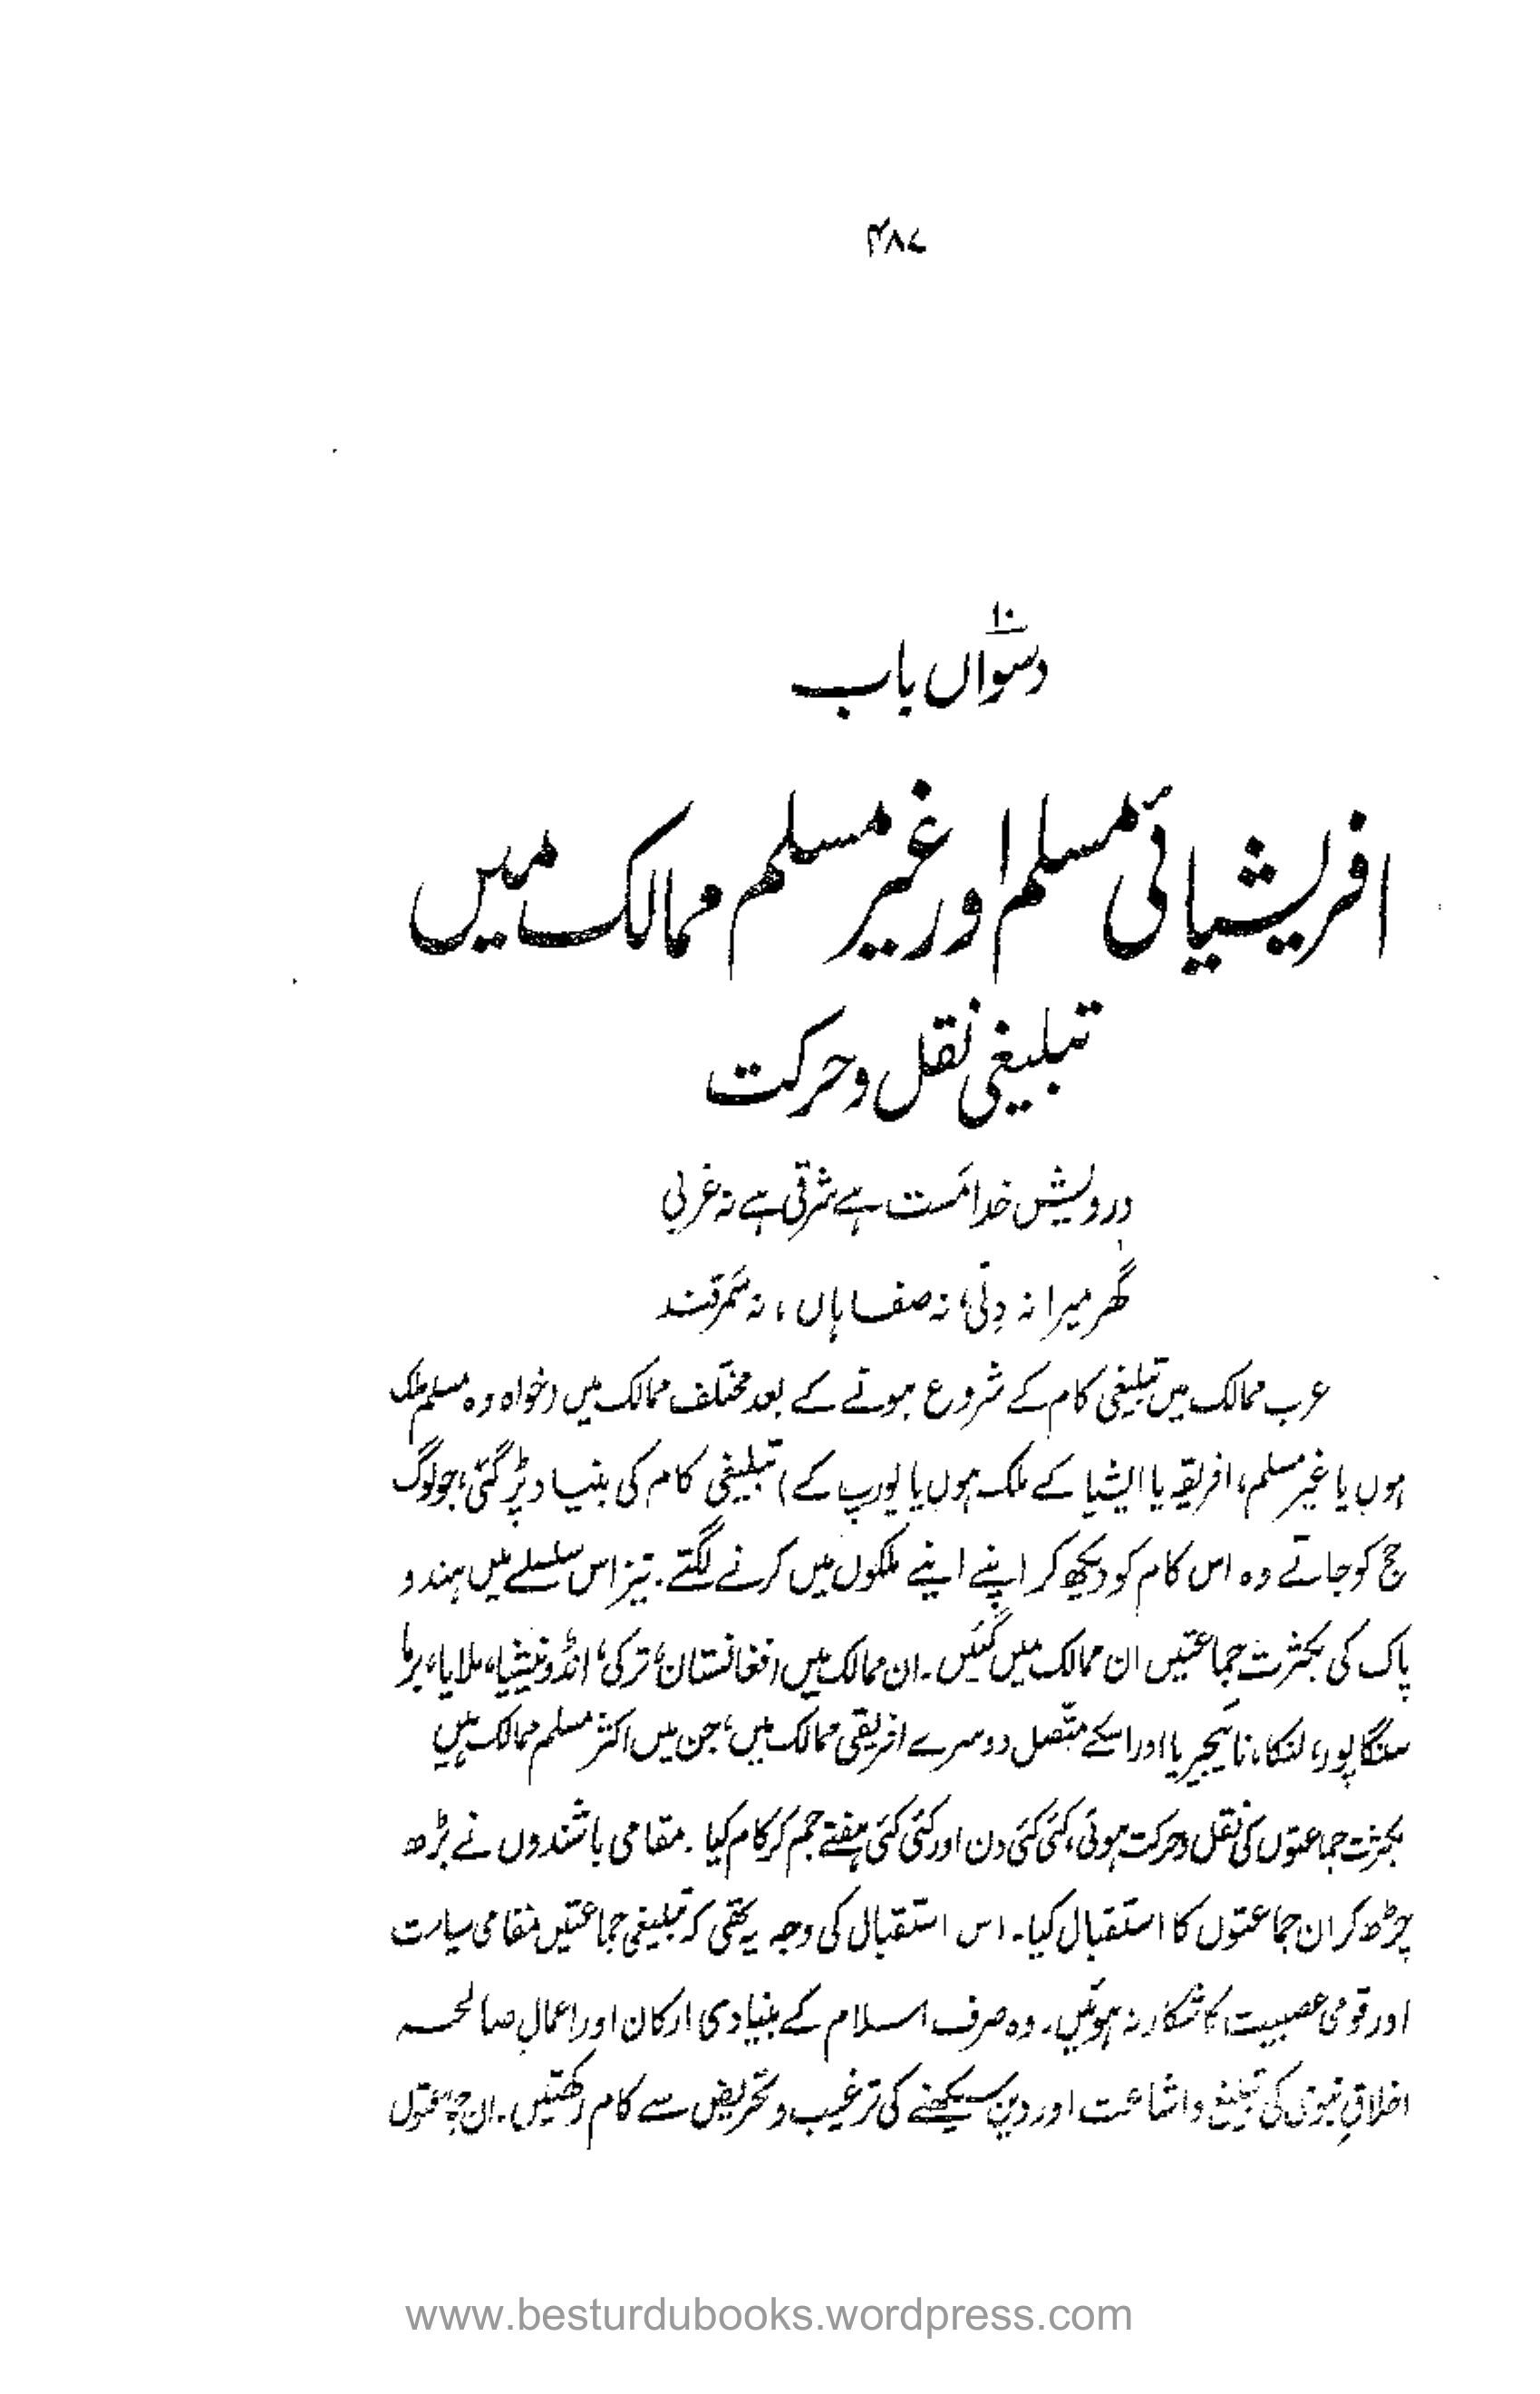 ۴۸۷
۱۰
دسواں باب
افریشیائی مسلم اور غیر مسلم ممالک میں
تبلیغی نقل و حرکت
درویش خدا مست ہے شرقی ہے نہ غربی
گھر میرا نہ دِلّی، نہ صفاہاں، نہ سمرقند
عرب ممالک میں تبلیغی کام کے شروع ہوتے کے بعد مختلف ممالک میں (خواہ وہ مسلم ملک
ہوں یا غیر مسلم، افریقہ یا ایشیا کے ملک ہوں یا یورپ کے) تبلیغی کام کی بنیاد پڑ گئی، جو لوگ
حج کو جاتے وہ اس کام کو دیکھ کر اپنے اپنے ملکوں میں کرنے لگتے۔ نیز اس سلسلے میں ہند و
پاک کی بکثرت جماعتیں ان ممالک میں گئیں۔ ان ممالک میں افغانستان، ترکی، انڈونیشیا، ملایا، برما
سنگاپور، لنکا، نائیجیریا اور اسکے متّصل دوسرے افریقی ممالک میں، جن میں اکثر مسلم ممالک ہیں
بکثرت جماعتوں کی نقل و حرکت ہوئی، کئی کئی دن اور کئی کئی ہفتے جم کر کام کیا۔ مقامی باشندوں نے بڑھ
چڑھ کر ان جماعتوں کا استقبال کیا۔ اس استقبال کی وجہ یہ تھی کہ تبلیغی جماعتیں مقامی سیاست
اور قومی عصبیت کا شکار نہ ہوئیں۔ وہ صرف اسلام کے بنیادی ارکان اور اعمالِ صالحہ
اخلاقِ نبوی کی تبلیغ و اشاعت اور دین سیکھنے کی ترغیب و تحریض سے کام رکھتیں۔ ان جماعتوں
www.besturdubooks.wordpress.com